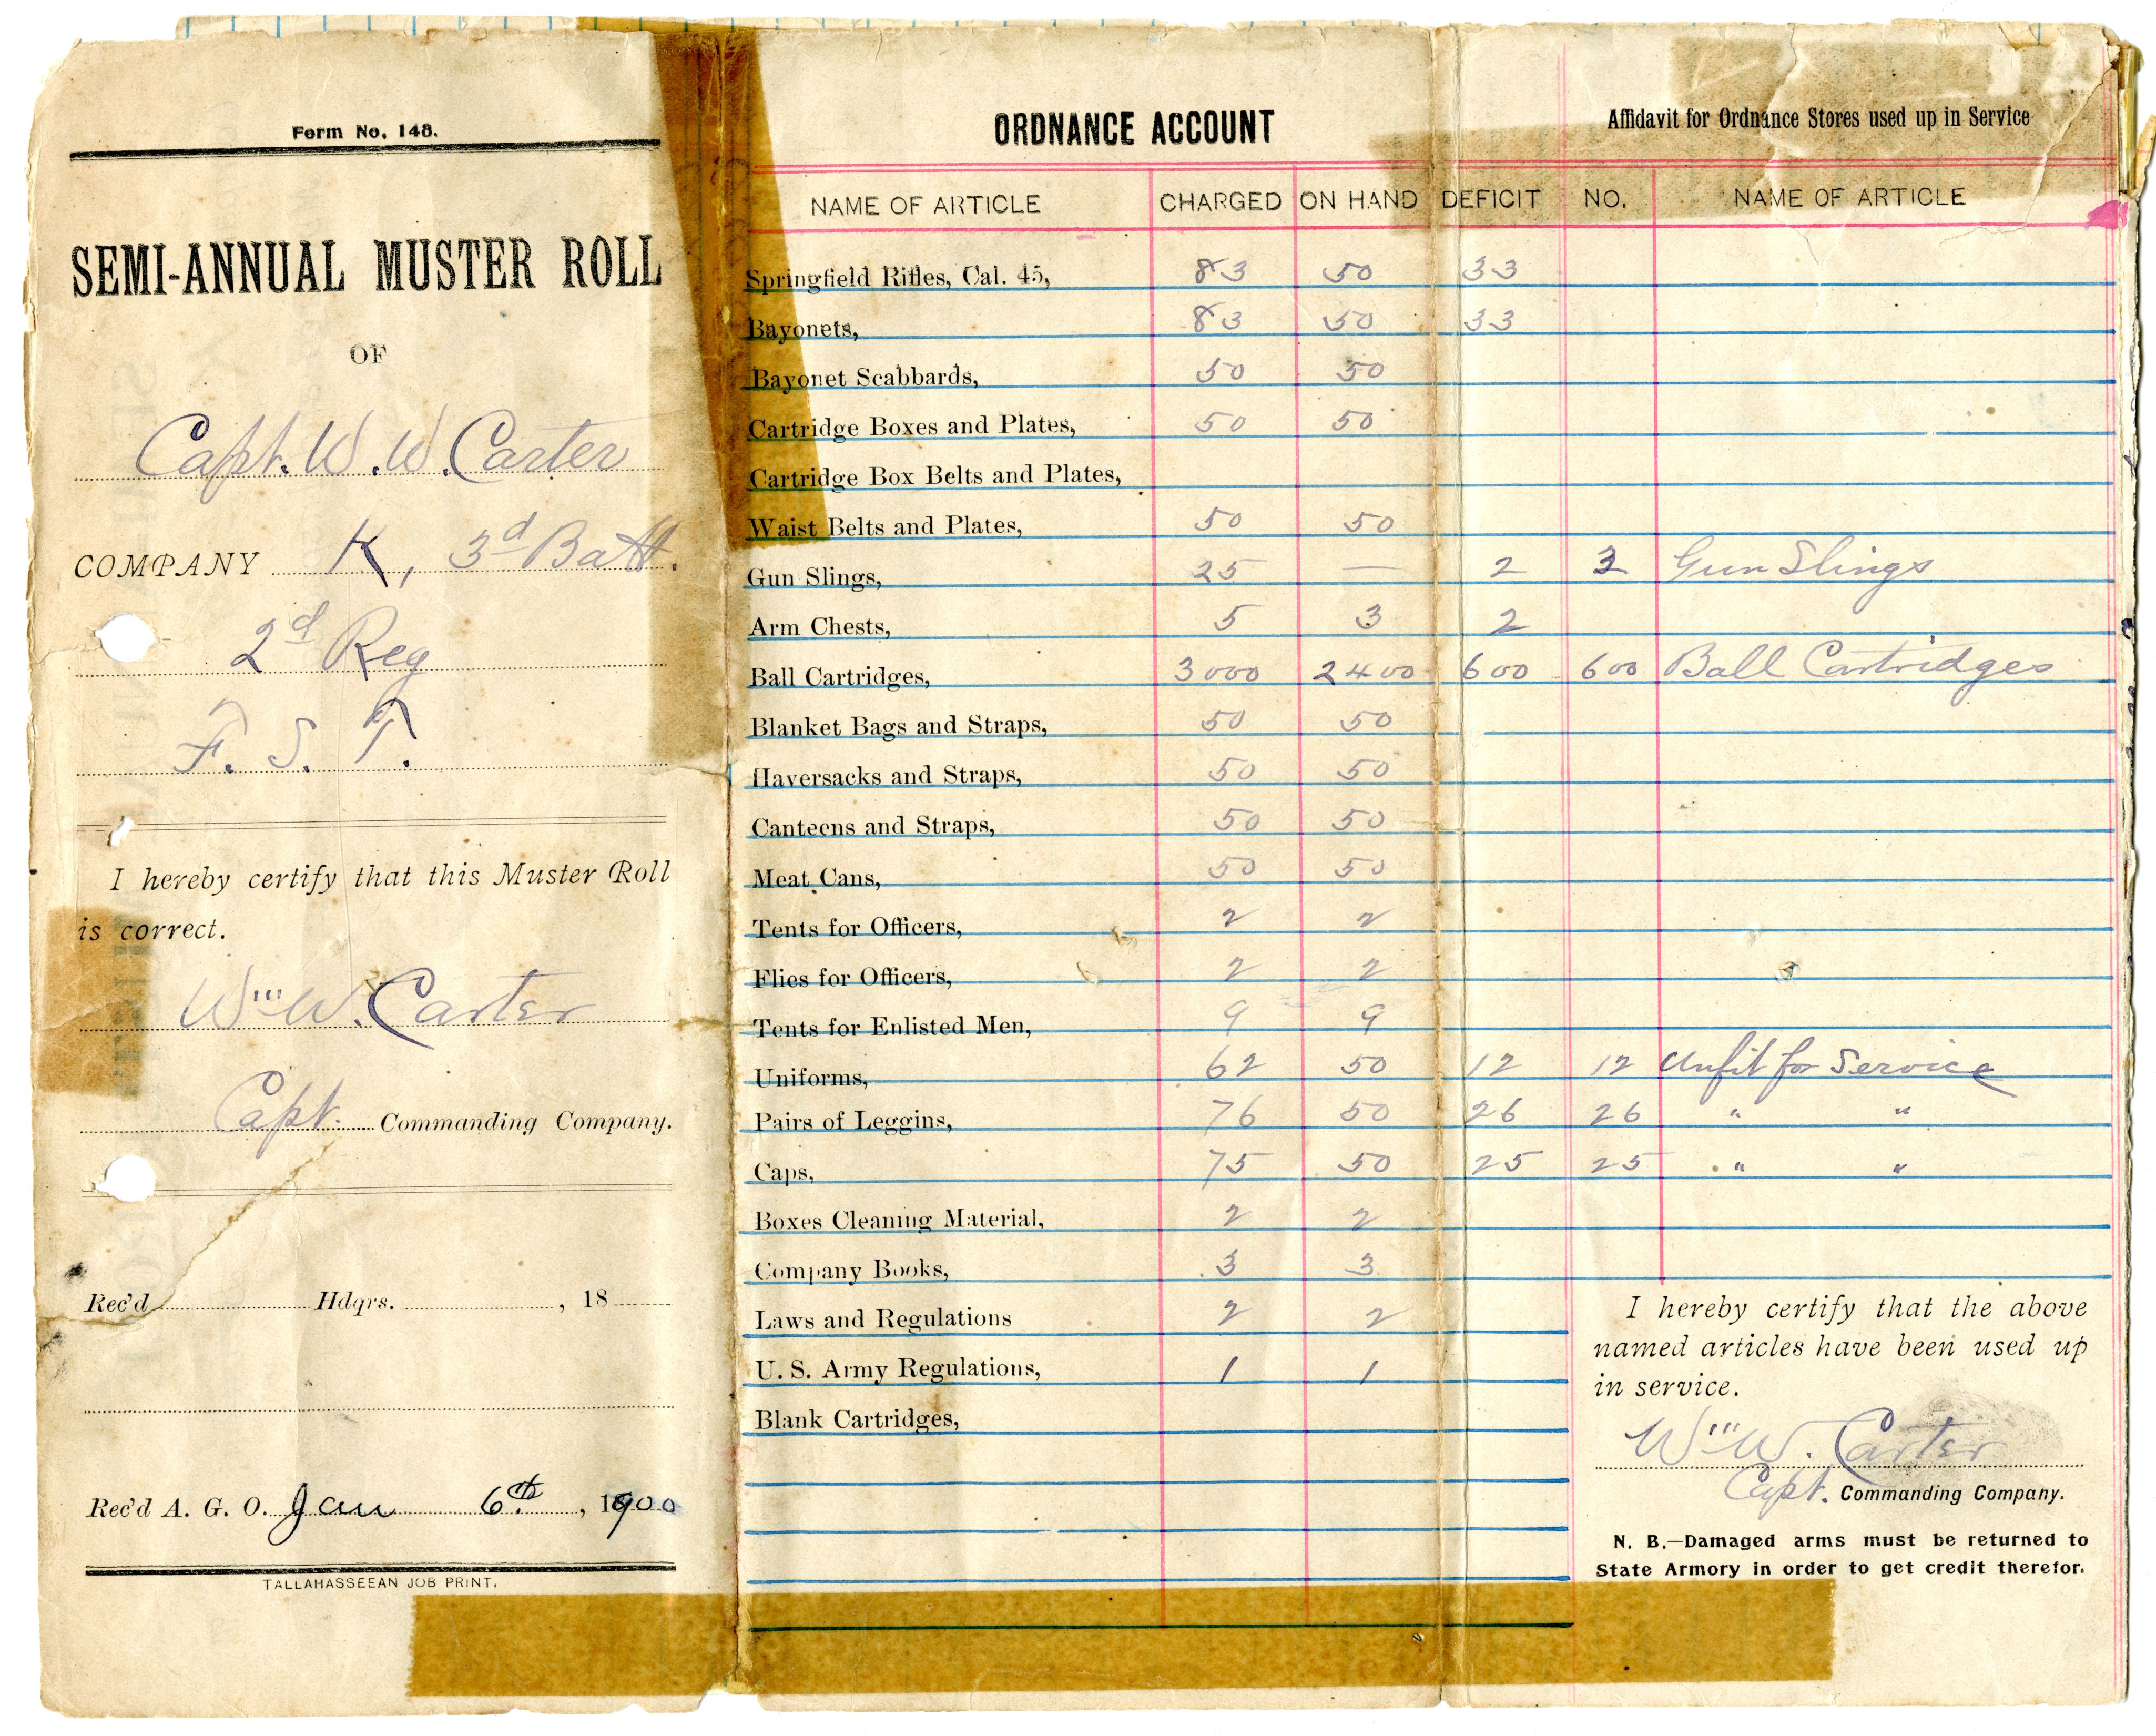 Form No. 148.
SEMI-ANNUAL MUSTER ROLL
OF
Capt. W. W. Carter
COMPANY K, 3d Batt.
2d Reg
F. S. T.
I hereby certify that this Muster Roll
is correct.
Wm W. Carter
Capt. Commanding Company.
Rec'd Hdqrs. , 18
Rec'd A. G. O. Jan 6th , 1900
TALLAHASSEEAN JOB PRINT.
ORDNANCE ACCOUNT
NAME OF ARTICLE CHARGED ON HAND DEFICIT
Springfield Rifles, Cal. 45, 83 50 33
Bayonets, 83 50 33
Bayonet Scabbards, 50 50
Cartridge Boxes and Plates, 50 50
Cartridge Box Belts and Plates,
Waist Belts and Plates, 50 50
Gun Slings, 25 — 2 2 Gun Slings
Arm Chests, 5 3 2
Ball Cartridges, 3000 2400 600 600 Ball Cartridges
Blanket Bags and Straps, 50 50
Haversacks and Straps, 50 50
Canteens and Straps, 50 50
Meat Cans, 50 50
Tents for Officers, 2 2
Flies for Officers, 2 2
Tents for Enlisted Men, 9 9
Uniforms, 62 50 12 12 Unfit for Service
Pairs of Leggins, 76 50 26 26 " "
Caps, 75 50 25 25 " "
Boxes Cleaning Material, 2 2
Company Books, 3 3
Laws and Regulations 2 2
U. S. Army Regulations, 1 1
Blank Cartridges,
Affidavit for Ordnance Stores used up in Service
NO. NAME OF ARTICLE
I hereby certify that the above
named articles have been used up
in service.
Wm W. Carter
Capt. Commanding Company.
N. B.—Damaged arms must be returned to
State Armory in order to get credit therefor.